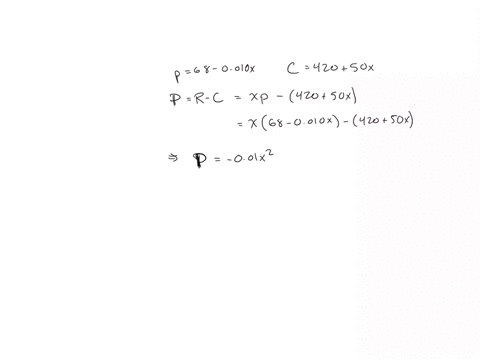 p = 68 - 0.010x   C = 420 + 50x
P = R - C = xp - (420 + 50x)
= x(68 - 0.010x) - (420 + 50x)
⇒ P = -0.01x²